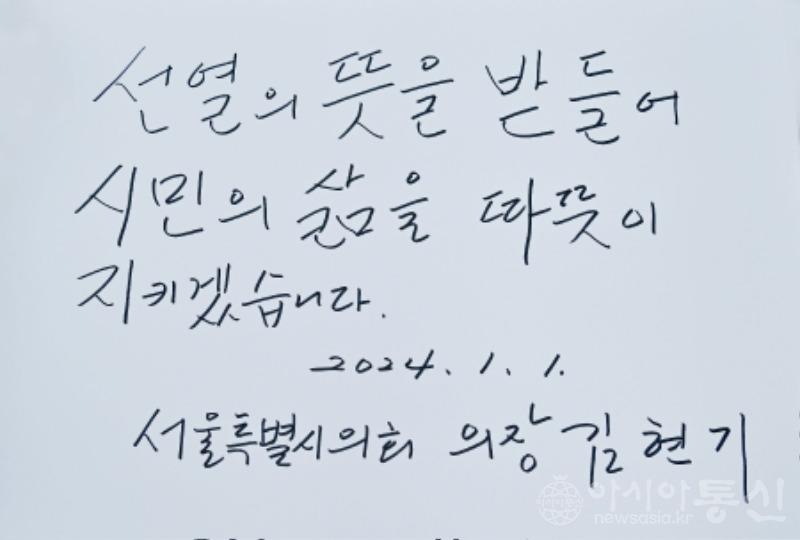 선열의 뜻을 받들어
시민의 삶을 따뜻이
지키겠습니다.
2024. 1. 1.
서울특별시의회 의장 김현기
아시아통신
newsasia.kr